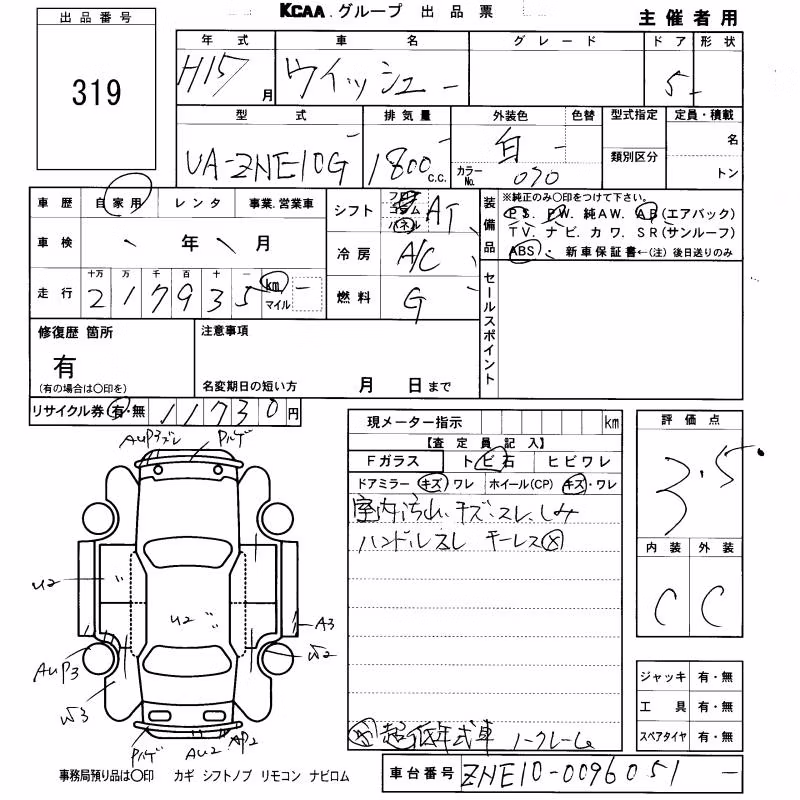 KCAA.グループ 出品票
主催者用
出品番号
319
年式 車名 グレード ドア 形状
H15 月 ウイッシュ - 5 -
型式 排気量 外装色 色替 型式指定 定員・積載
UA-ZNE10G 1800 c.c. 白 - カラーNo. 070 類別区分 名
トン
車歴 自家用 レンタ 事業.営業車
車検 年 月
走行 十万 万 千 百 十 一
2 1 7 9 3 5 km マイル -
シフト フロア コラム パネル AT
冷房 A/C
燃料 G
装備品
※純正のみ○印をつけて下さい。
P.S. P.W. 純A.W. A.B(エアバック)
T.V. ナビ.カワ.S.R(サンルーフ)
ABS・ 新車保証書←(注)後日送りのみ
セールスポイント
修復歴 箇所
有
(有の場合は○印を)
注意事項
名変期日の短い方 月 日まで
リサイクル券 有・無 11730円
現メーター指示 km
【査定員記入】
Fガラス トビ石 ヒビワレ
ドアミラー キズ ワレ ホイール(CP) キズ・ワレ
室内汚れ、キズ、スレ、しみ
ハンドルスレ キーレス×
超低年式車 ノークレーム
評価点
3.5
内装 外装
C C
ジャッキ 有・無
工具 有・無
スペアタイヤ 有・無
AUP3ズレ Pハゲ
U2
U2
A3
AUP3
W2
W3
Pハゲ AU2 AP2
事務局預り品は○印 カギ シフトノブ リモコン ナビロム
車台番号 ZNE10-0096051 -